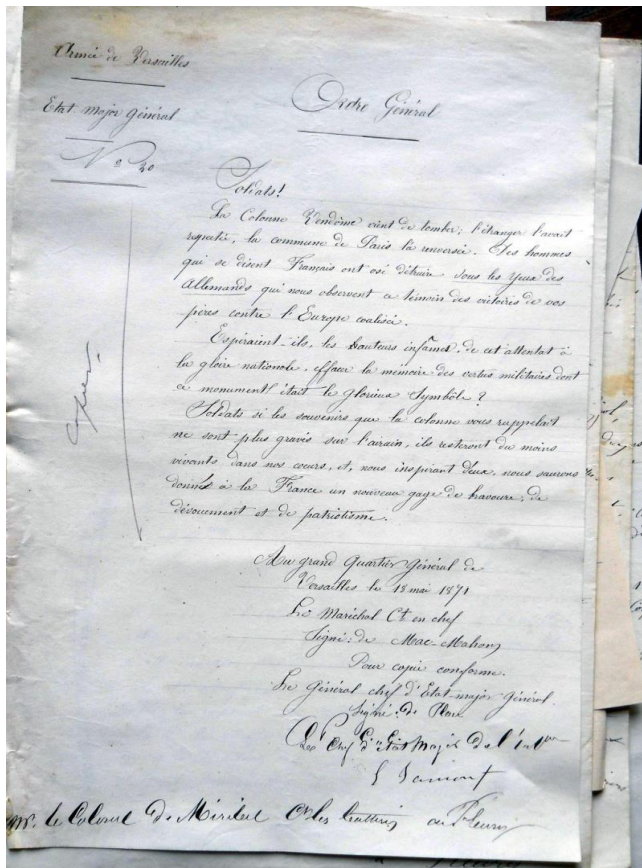 Armée de Versailles
Etat major général
N° 30
Ordre Général
Soldats!
La Colonne Vendôme vient de tomber; l'étranger l'avait
respectée, la commune de Paris l'a renversée. Des hommes
qui se disent Français ont osé détruire sous les yeux des
Allemands qui nous observent ce témoin des victoires de vos
pères contre l'Europe coalisée.
Espéraient-ils, les hauteurs infâmes, de cet attentat à
la gloire nationale, effacer la mémoire des vertus militaires dont
ce monument était le glorieux symbôle?
Soldats si les souvenirs que la colonne vous rappelait
ne sont plus gravés sur l'airain, ils resteront du moins
vivants dans nos coeurs, et, nous inspirant d'eux, nous saurons
donner à la France un nouveau gage de bravoure, de
dévouement et de patriotisme.
Au grand quartier général de
Versailles le 18 mai 1871
Le Maréchal Ct en chef
Signé: de Mac-Mahon
Pour copie conforme.
Le Général chef d'Etat-major général.
Signé: de
Le Chef d'Etat Major de l'
Mr. le Colonel de Miribel Ct les batteries